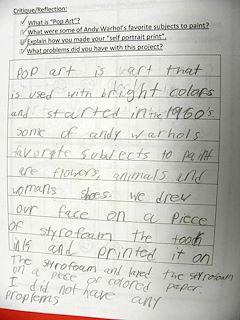 Critique/Reflection:
✓ What is "Pop Art"?
✓ What were some of Andy Warhol's favorite subjects to paint?
✓ Explain how you made your "self portrait print".
✓ What problems did you have with this project?
POP art is art that
is used with bright colors
and started in the 1960's.
some of andy warhols
favorite subjects to paint
are flowers, animals and
womans shoes. we drew
our face on a piece
of styrofoam the took
ink and printed it on
The styrofoam and the styrofoam
on a piece of colored paper.
I did not have any
problems